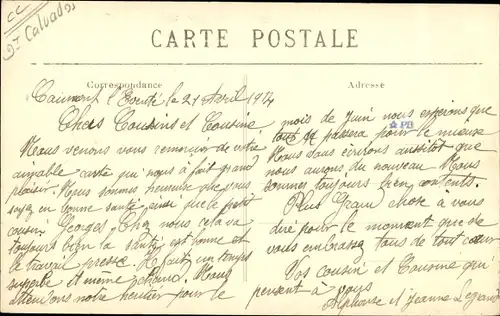 CC
Dt Calvados
CARTE POSTALE
Correspondance
Adresse
Caumont l'Eventé le 21 Avril 1914
Chers Cousins et Cousine
Nous venons vous remercier de votre
aimable carte qui nous a fait grand
plaisir. Nous sommes heureux que vous
soyez en bonne santé ainsi que le petit
cousin Georges. Chez nous cela va
toujours bien la santé est bonne et
le travail presse. Il fait un temps
superbe et même chaud. Nous
attendons notre héritier pour le
mois de Juin nous espérons que
tout se passera pour le mieux
Nous vous écrirons aussitôt que
nous aurons du nouveau Nous
sommes toujours bien contents.
Plus Grand chose a vous
dire pour le moment que de
vous embrassez tous de tout cœur
Vos cousin et Cousine qui
pensent à vous
Alphonse et Jeanne Legrand
PB